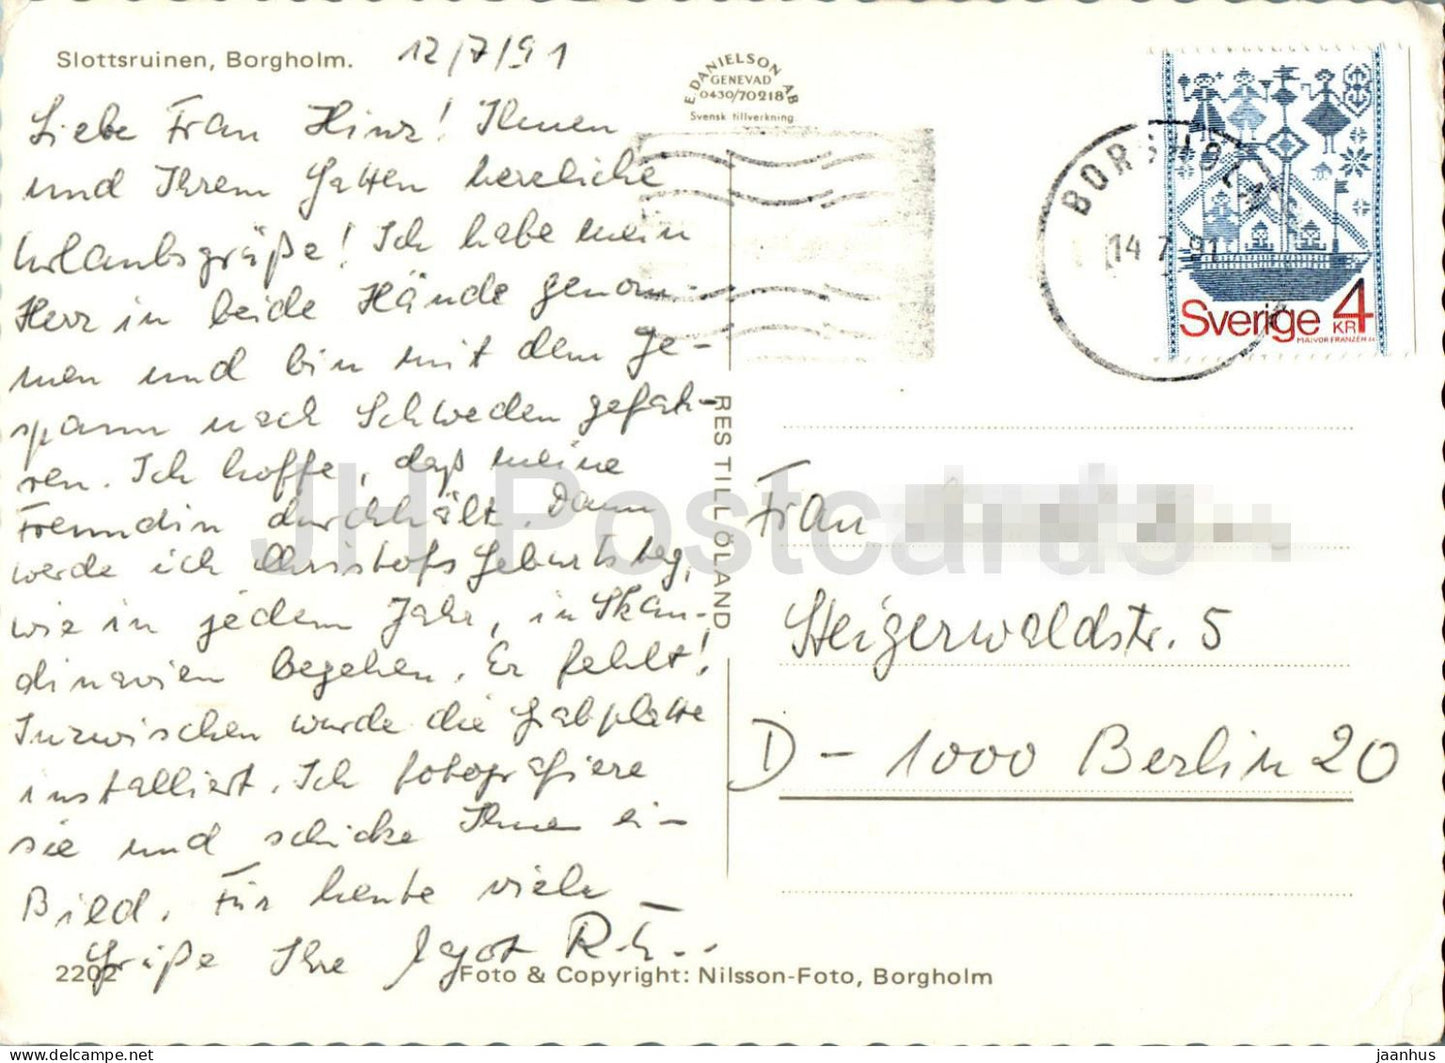 Slottsruinen, Borgholm. 12/7/91
E. DANIELSON AB
GENEVAD
0430/70218
Svensk tillverkning
Liebe Frau Hinz! Ihnen
und Ihrem Gatten herzliche
Urlaubsgrüße! Ich habe mein
Herz in beide Hände genom-
men und bin mit dem Ge-
spann nach Schweden gefah-
ren. Ich hoffe, daß meine
Freundin durchhält. Dann
werde ich Christofs Geburtstag,
wie in jedem Jahr, in Skan-
dinavien begehen. Er fehlt!
Inzwischen wurde die Grabplatte
installiert. Ich fotografiere
sie und schicke Ihnen ei-
Bild. Für heute viele
Grüße Ihre
2202
Foto & Copyright: Nilsson-Foto, Borgholm
RES TILL ÖLAND
BORGHOLM
14 7 91
Sverige 4
KR
MAJVOR FRANZÉN
Frau
Steigerwaldstr. 5
D - 1000 Berlin 20
JH Postcards
jaanhus — https://www.delcampe.net